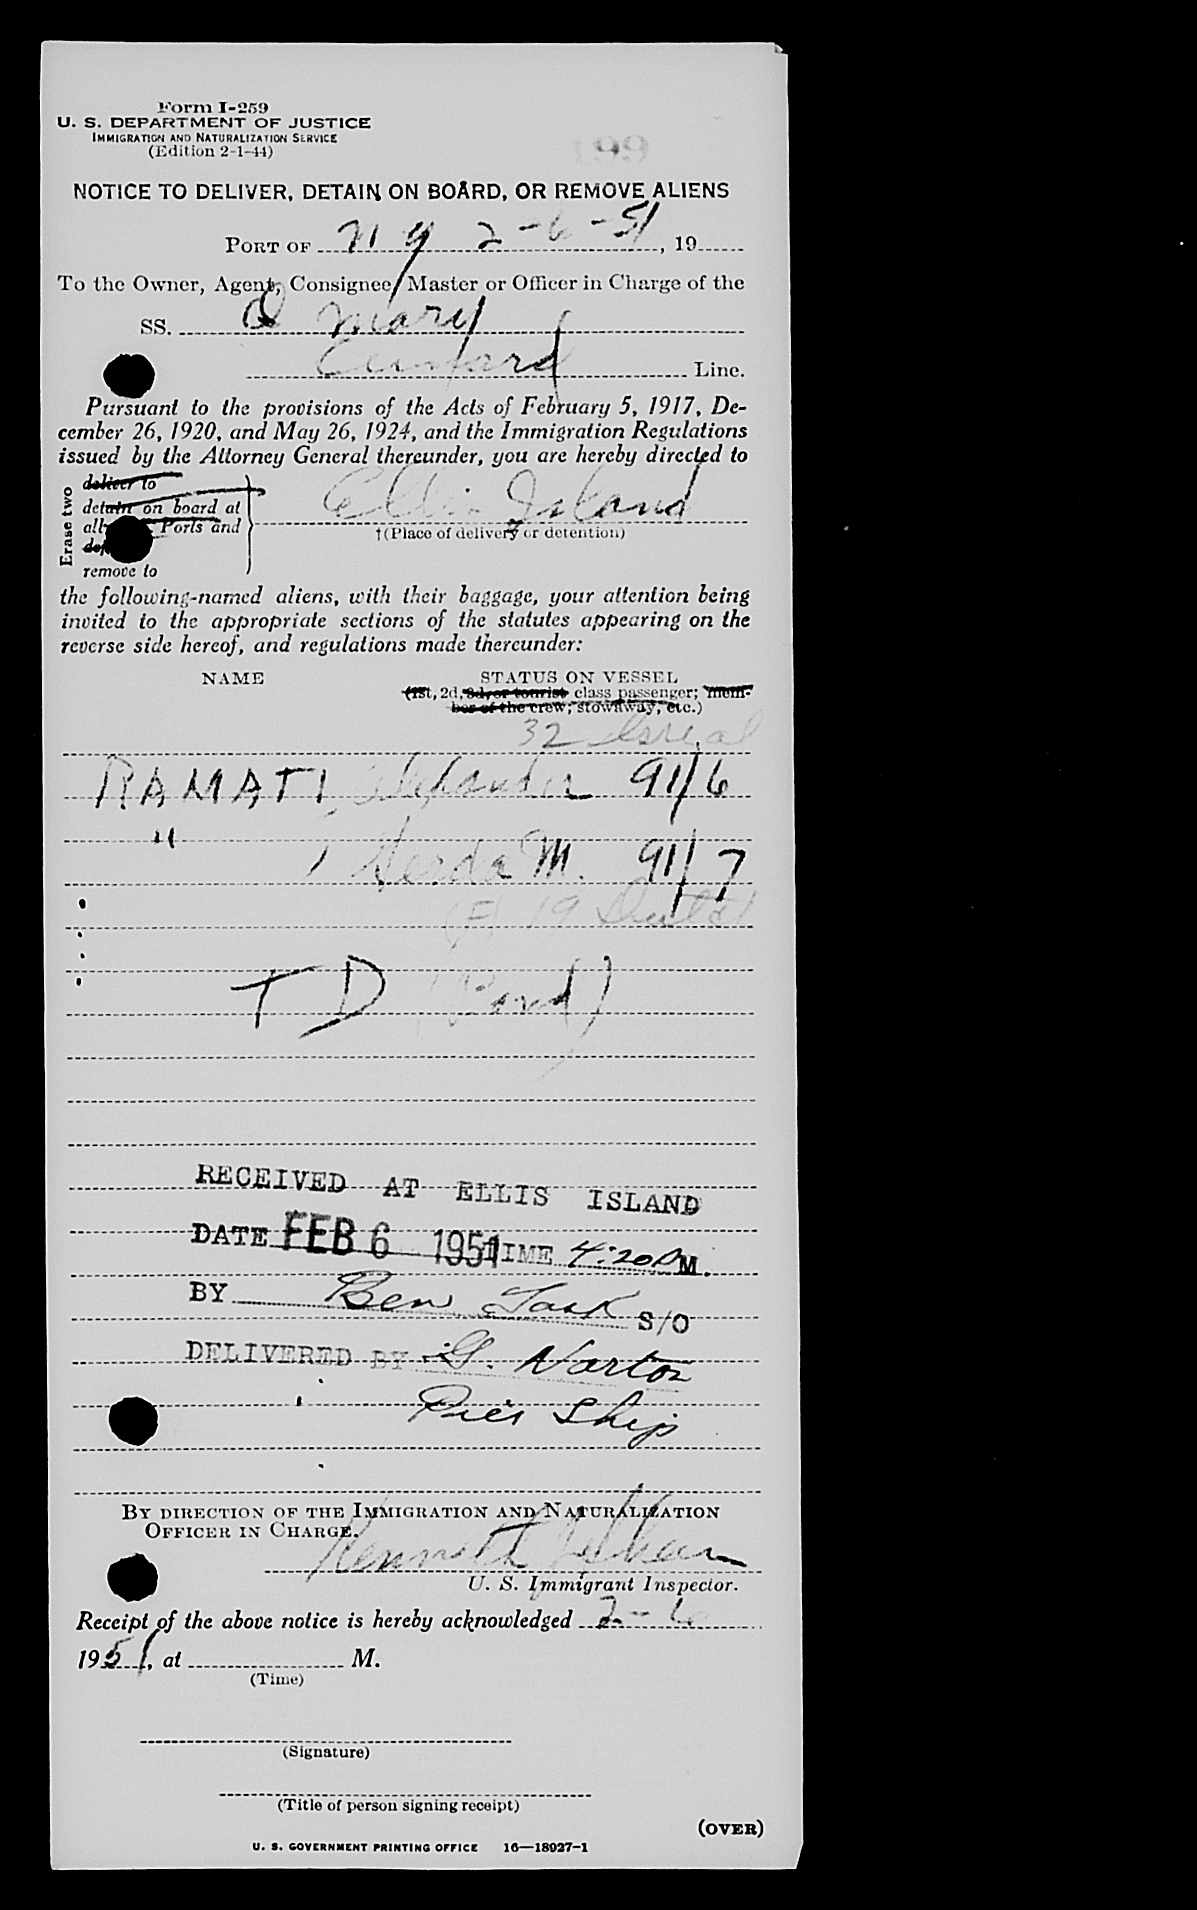 Form I-259
U. S. DEPARTMENT OF JUSTICE
IMMIGRATION AND NATURALIZATION SERVICE
(Edition 2-1-44)
NOTICE TO DELIVER, DETAIN ON BOARD, OR REMOVE ALIENS
PORT OF N Y 2-6-51, 19
To the Owner, Agent, Consignee, Master or Officer in Charge of the
SS. Q Mary
Cunard Line.
Pursuant to the provisions of the Acts of February 5, 1917, De-
cember 26, 1920, and May 26, 1924, and the Immigration Regulations
issued by the Attorney General thereunder, you are hereby directed to
Erase two
deliver to
detain on board at
all Ports and
remove to
Ellis Island
†(Place of delivery or detention)
the following-named aliens, with their baggage, your attention being
invited to the appropriate sections of the statutes appearing on the
reverse side hereof, and regulations made thereunder:
NAME STATUS ON VESSEL
(1st, 2d, 3d, or tourist class passenger; mem-
ber of the crew; stowaway, etc.)
32 Isreal
RAMATI, Alexander 91/6
" , Gerda M. 91/7
(F) 19
T D (Bond)
RECEIVED AT ELLIS ISLAND
DATE FEB 6 1951 TIME 4:20 PM.
BY Ben S/O
DELIVERED BY G. Norton
Pier Ship
BY DIRECTION OF THE IMMIGRATION AND NATURALIZATION
OFFICER IN CHARGE.
Kenneth
U. S. Immigrant Inspector.
Receipt of the above notice is hereby acknowledged 2-6
1951, at M.
(Time)
(Signature)
(Title of person signing receipt)
(OVER)
U. S. GOVERNMENT PRINTING OFFICE 16—18927-1